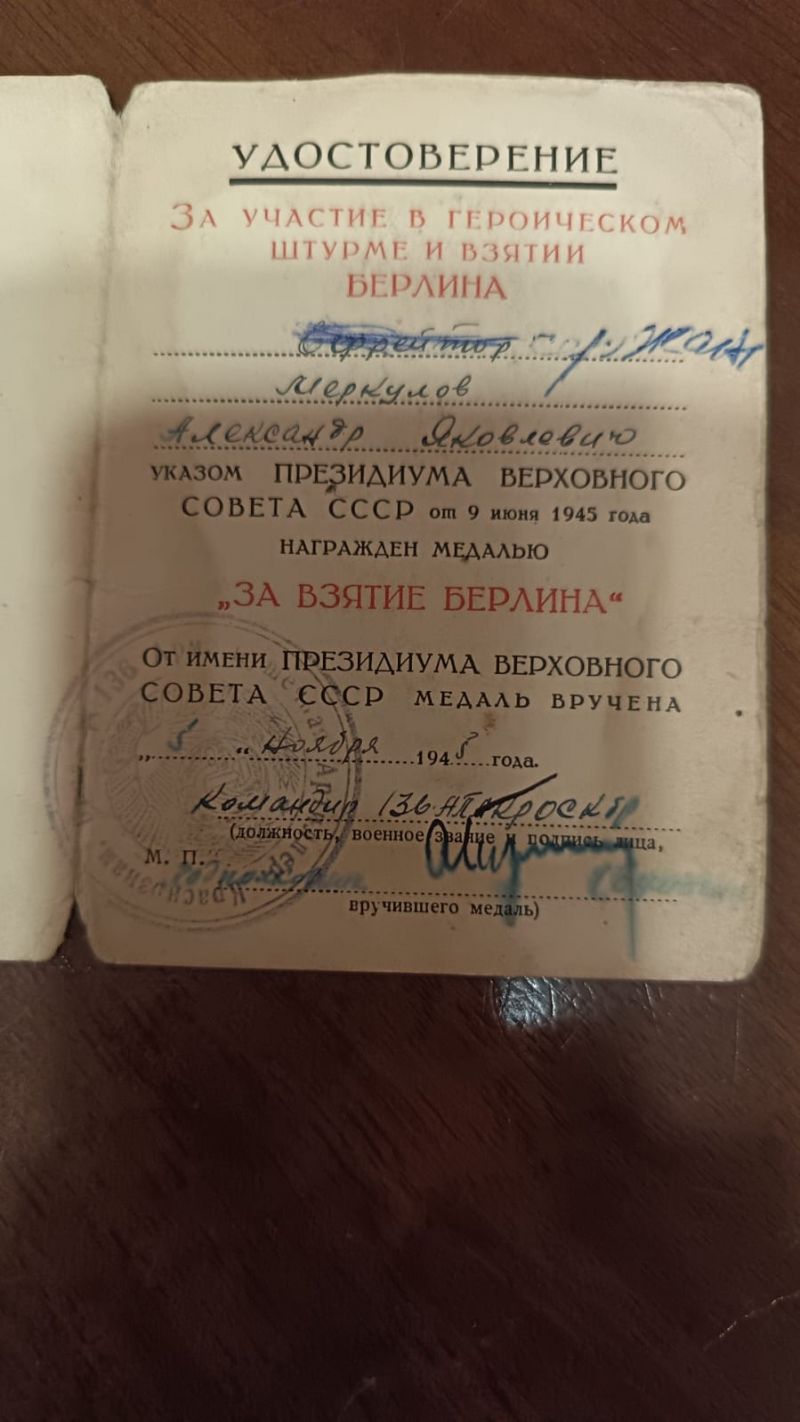 УДОСТОВЕРЕНИЕ
ЗА УЧАСТИЕ В ГЕРОИЧЕСКОМ
ШТУРМЕ И ВЗЯТИИ
БЕРЛИНА
Ефрейтор
Меркулов
Александр Яковлевич
УКАЗОМ ПРЕЗИДИУМА ВЕРХОВНОГО
СОВЕТА СССР от 9 июня 1945 года
НАГРАЖДЕН МЕДАЛЬЮ
„ЗА ВЗЯТИЕ БЕРЛИНА“
ОТ ИМЕНИ ПРЕЗИДИУМА ВЕРХОВНОГО
СОВЕТА СССР МЕДАЛЬ ВРУЧЕНА
„5“ ноября 1945 года.
Командир 136
(должность, военное звание и подпись лица,
М. П.
вручившего медаль)